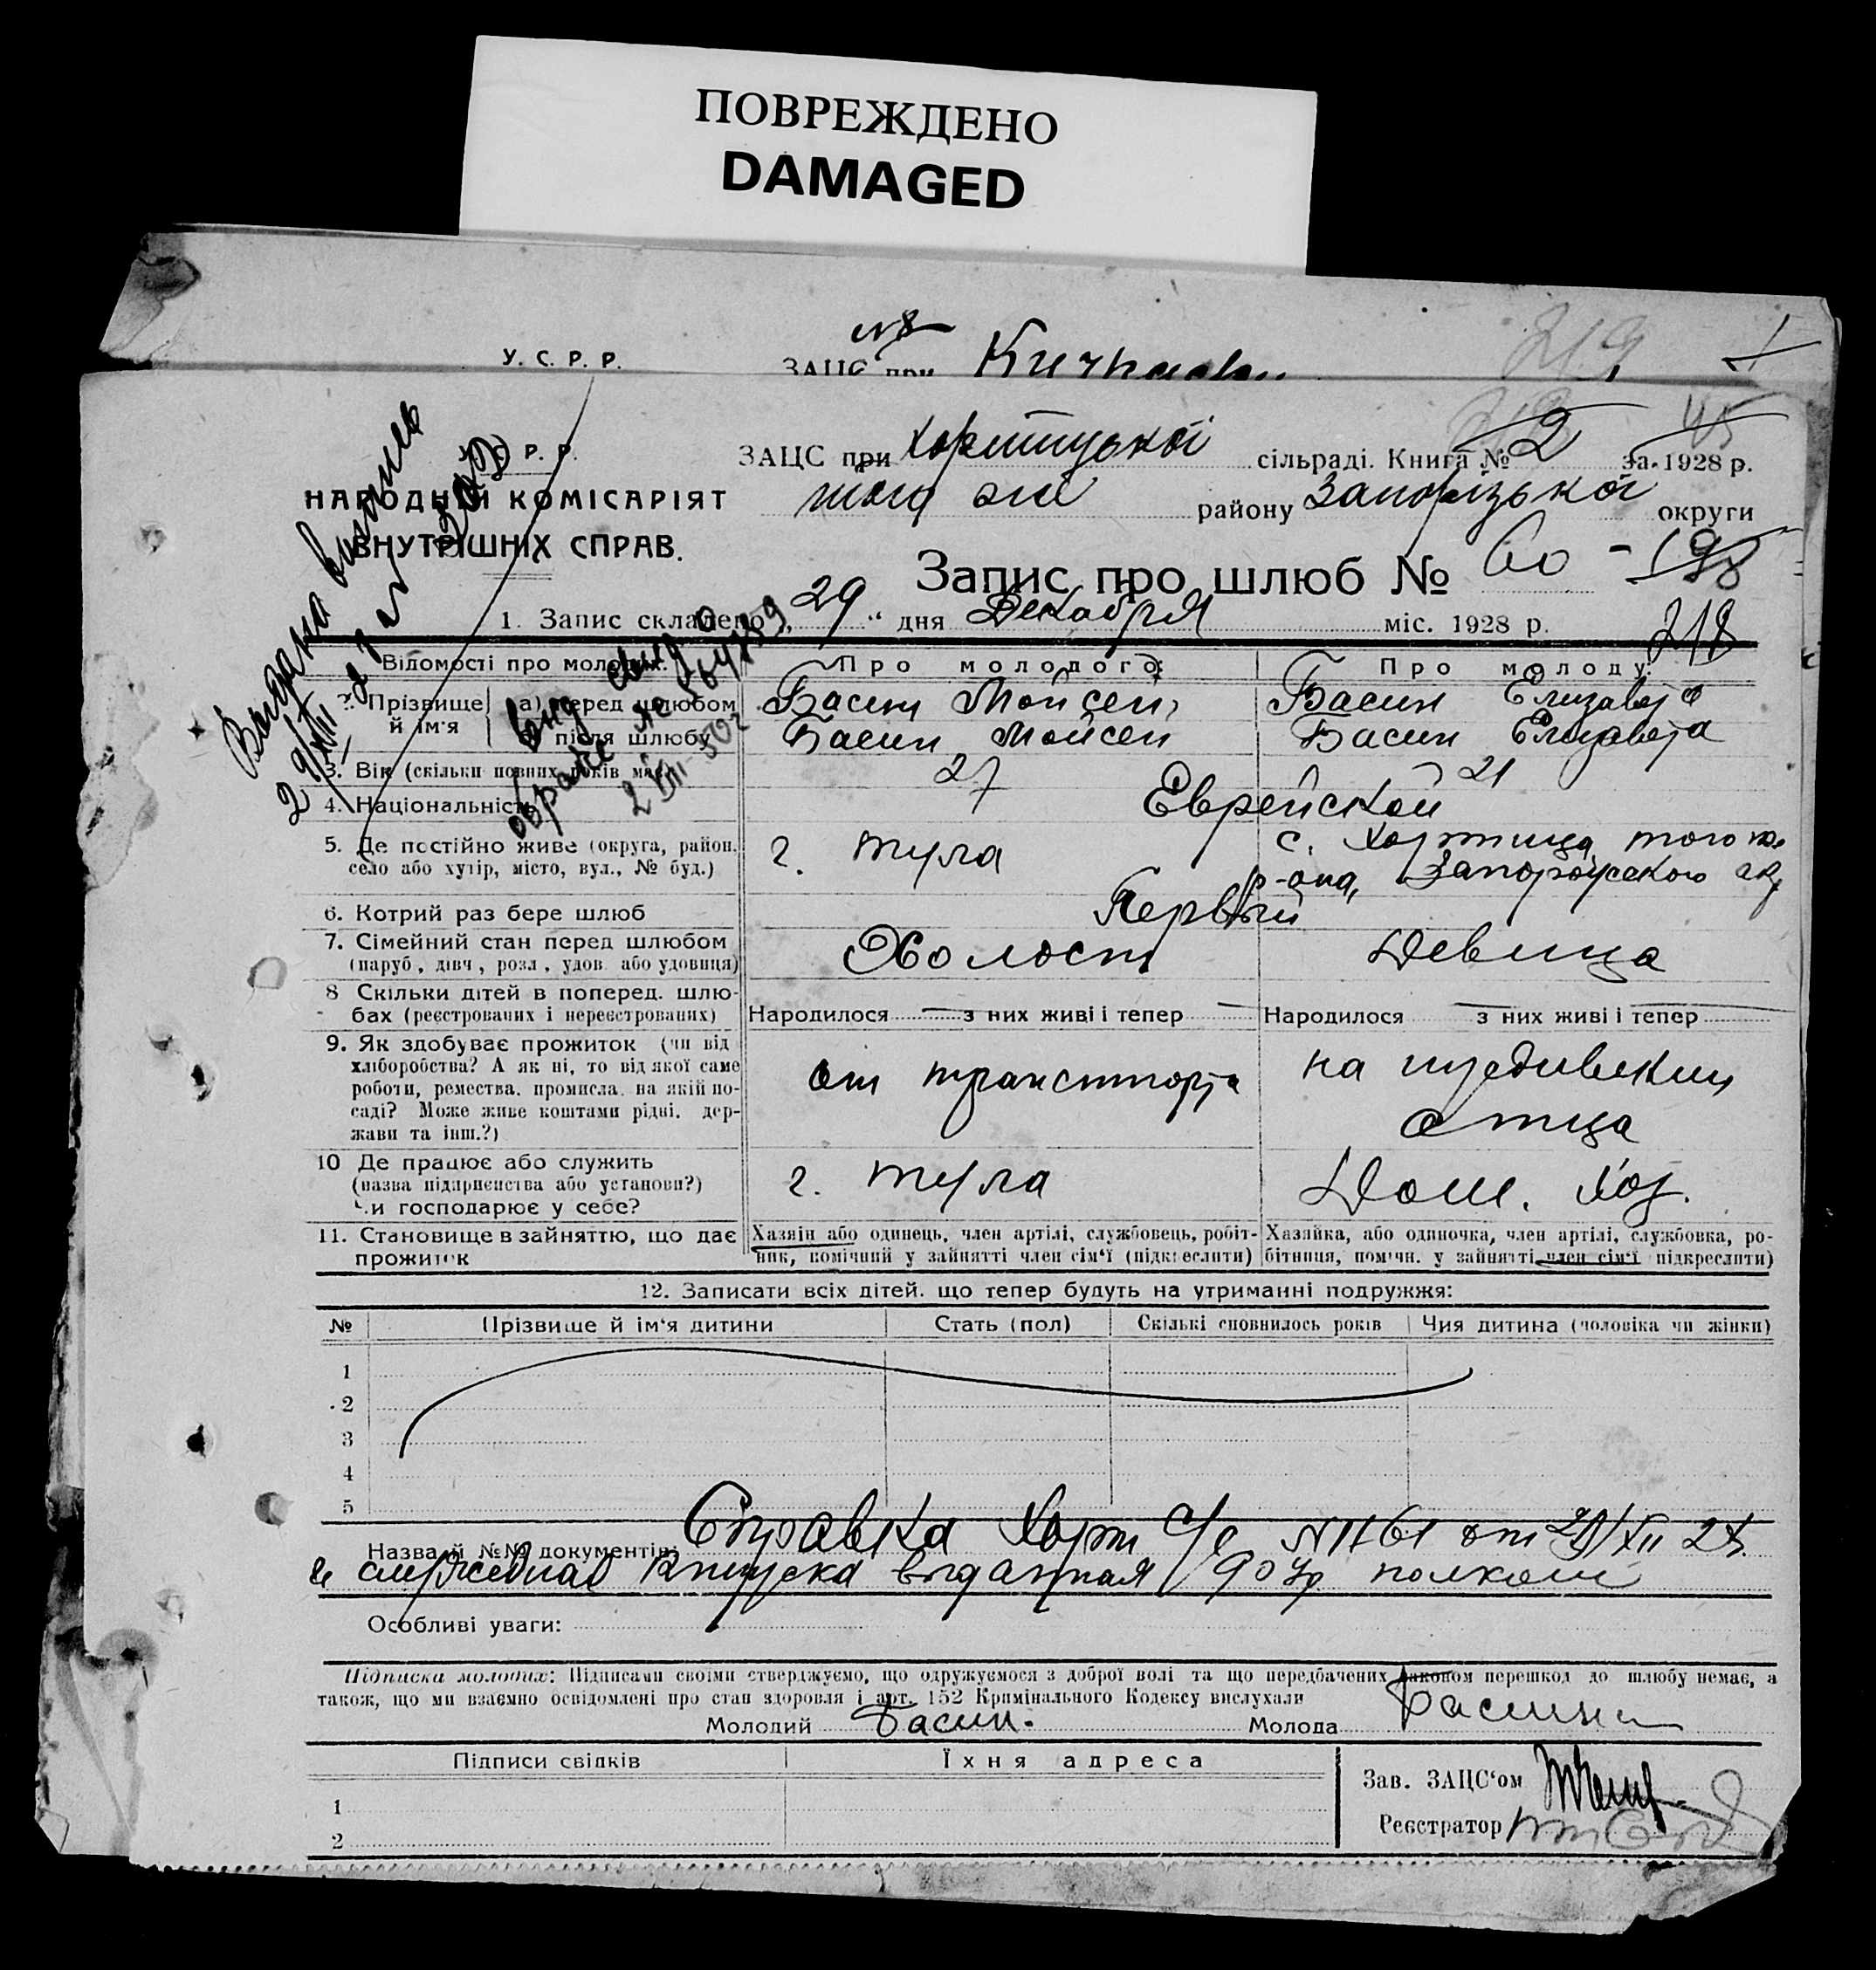 ПОВРЕЖДЕНО
DAMAGED
У. С. Р. Р.
ЗАЦС при
219
ЗАЦС при Хортицькой сільраді. Книга № 2 за 1928 р.
НАРОДНІЙ КОМІСАРІЯТ
ВНУТРІШНІХ СПРАВ.
того же району Запорізької округи
Запис про шлюб № 60 -
1. Запис складено „29“ дня Декабря міс. 1928 р.
218
Відомості про молодих. Про молодого: Про молоду:
2. Прізвище й ім'я
а) перед шлюбом Басин Мойсей Басин Елизавета
після шлюбу Басин Мойсей Басин Елизавета
3. Вік (скільки повних років має) 27 21
4. Національність Еврейской
5. Де постійно живе (округа, район, село або хутір, місто, вул., № буд.) г. Тула с. Хортица того же
р-она, Запорожского окр
6. Котрий раз бере шлюб Первый
7. Сімейний стан перед шлюбом Холост Девица
(паруб, дівч, розл, удов. або удовиця)
8 Скільки дітей в поперед. шлюбах (реєстрованих і нереєстрованих) Народилося з них живі і тепер Народилося з них живі і тепер
9. Як здобуває прожиток (чи від
хліборобства? А як ні, то від якої саме
роботи, ремества, промисла, на якій посаді? Може живе коштами рідні, держави та інш.?)
от транспорта на иждивении
отца
10 Де працює або служить
(назва підприєнства або установи?)
Чи господарює у себе?
г. Тула Дом. хоз.
11. Становище в зайняттю, що дає прожиток
Хазяїн або одинець, член артілі, службовець, робітник, помічний у зайнятті член сім'ї (підкреслити)
Хазяйка, або одиночка, член артілі, службовка, робітниця, помічн. у зайнятті член сім'ї підкреслити)
12. Записати всіх дітей, що тепер будуть на утриманні подружжя:
№ Прізвище й ім'я дитини Стать (пол) Скількі сповнилось років Чия дитина (чоловіка чи жінки)
1
2
3
4
5
Назва й №№ документів: Справка Хорт с/с № 1161 от
выданная 90 полком
Особливі уваги:
Підписка молодих: Підписами своїми стверджуємо, що одружуємося з доброї волі та що передбачених законом перешкод до шлюбу немає, а
також, що ми взаємно освідомлені про стан здоровля і арт. 152 Кримінального Кодексу вислухали
Молодий Басин. Молода Басина
Підписи свідків Їхня адреса
Зав. ЗАЦС'ом
Реєстратор
1
2